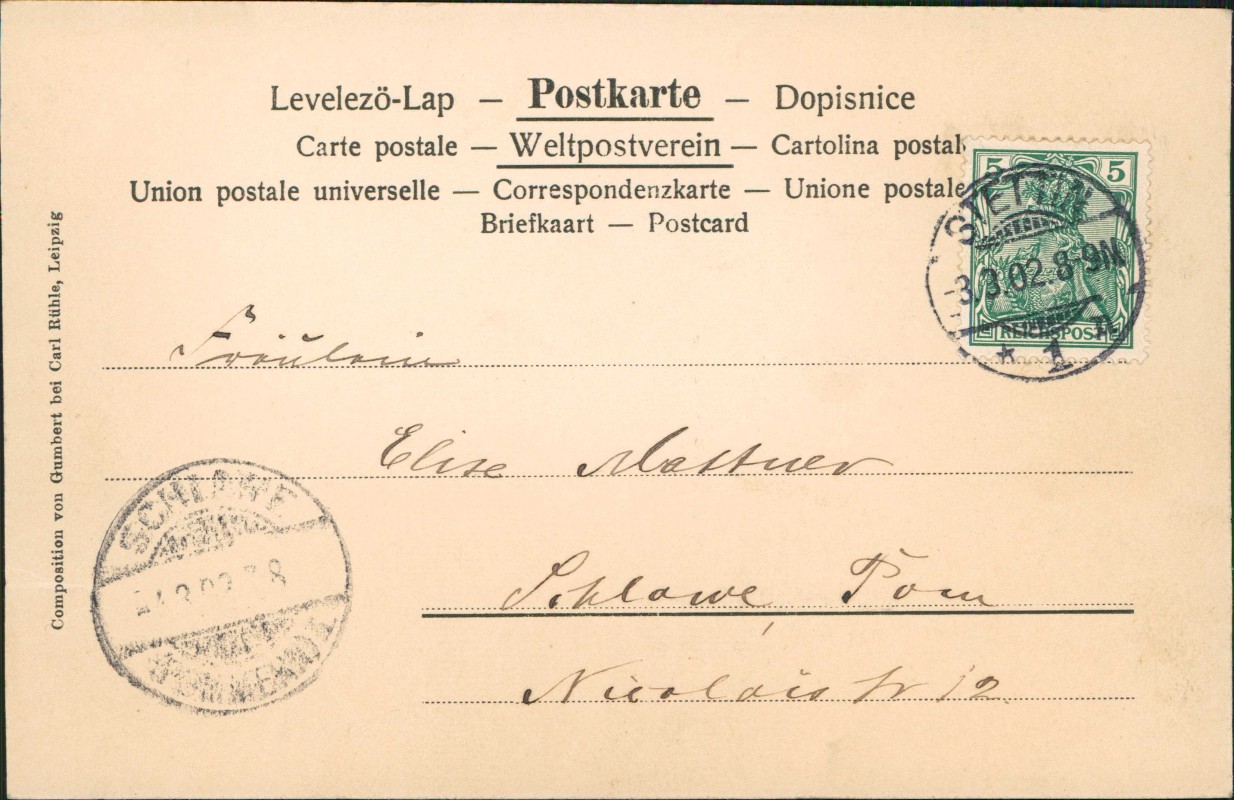 Levelezö-Lap — Postkarte — Dopisnice
Carte postale — Weltpostverein — Cartolina postal
Union postale universelle — Correspondenzkarte — Unione postale
Briefkaart — Postcard
5 5
REICHSPOST
STETTIN
3.3.02.8-9N
* 1
Composition von Gumbert bei Carl Rühle, Leipzig
Fräulein
Elise Mattner
Schlawe Pom
Nicolaistr 12
SCHLAWE